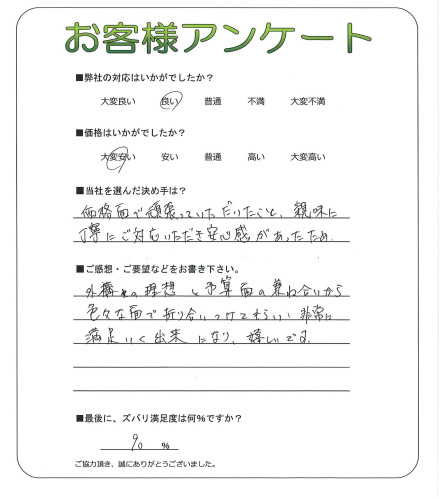 お客様アンケート
■弊社の対応はいかがでしたか？
大変良い 良い 普通 不満 大変不満
■価格はいかがでしたか？
大変安い 安い 普通 高い 大変高い
■当社を選んだ決め手は？
価格面で頑張っていただいたこと、親味に
丁寧にご対応いただき安心感があったため.
■ご感想・ご要望などをお書き下さい。
外構の理想と予算面の兼ね合いから
色々な面で折り合いつけてもらい非常に
満足いく出来になり、嬉しいです.
■最後に、ズバリ満足度は何％ですか？
90 ％
ご協力頂き、誠にありがとうございました。